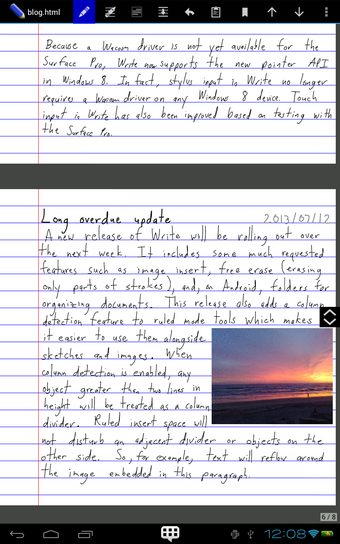 blog.html
Because a Wacom driver is not yet available for the
Surface Pro, Write now supports the new pointer API
in Windows 8. In fact, stylus input in Write no longer
requires a Wacom driver on any Windows 8 device. Touch
input in Write has also been improved based on testing with
the Surface Pro.
Long overdue update 2013/07/17
A new release of Write will be rolling out over
the next week. It includes some much requested
features such as image insert, free erase (erasing
only parts of strokes), and, on Android, folders for
organizing documents. This release also adds a column
detection feature to ruled mode tools which makes
it easier to use them alongside
sketches and images. When
column detection is enabled, any
object greater than two lines in
height will be treated as a column
divider. Ruled insert space will
not disturb an adjacent divider or objects on the
other side. So, for example, text will reflow around
the image embedded in this paragraph.
6/8
12:08